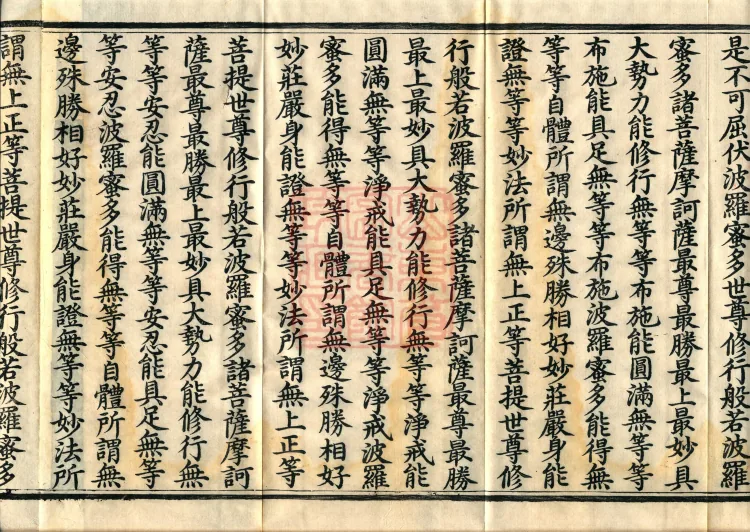 是不可屈伏波羅蜜多世尊修行般若波羅
蜜多諸菩薩摩訶薩最尊最勝最上最妙具
大勢力能修行無等等布施能圓滿無等等
布施能具足無等等布施波羅蜜多能得無
等等自體所謂無邊殊勝相好妙莊嚴身能
證無等等妙法所謂無上正等菩提世尊修
行般若波羅蜜多諸菩薩摩訶薩最尊最勝
最上最妙具大勢力能修行無等等淨戒能
圓滿無等等淨戒能具足無等等淨戒波羅
蜜多能得無等等自體所謂無邊殊勝相好
妙莊嚴身能證無等等妙法所謂無上正等
菩提世尊修行般若波羅蜜多諸菩薩摩訶
薩最尊最勝最上最妙具大勢力能修行無
等等安忍能圓滿無等等安忍能具足無等
等安忍波羅蜜多能得無等等自體所謂無
邊殊勝相好妙莊嚴身能證無等等妙法所
謂無上正等菩提世尊修行般若波羅蜜多